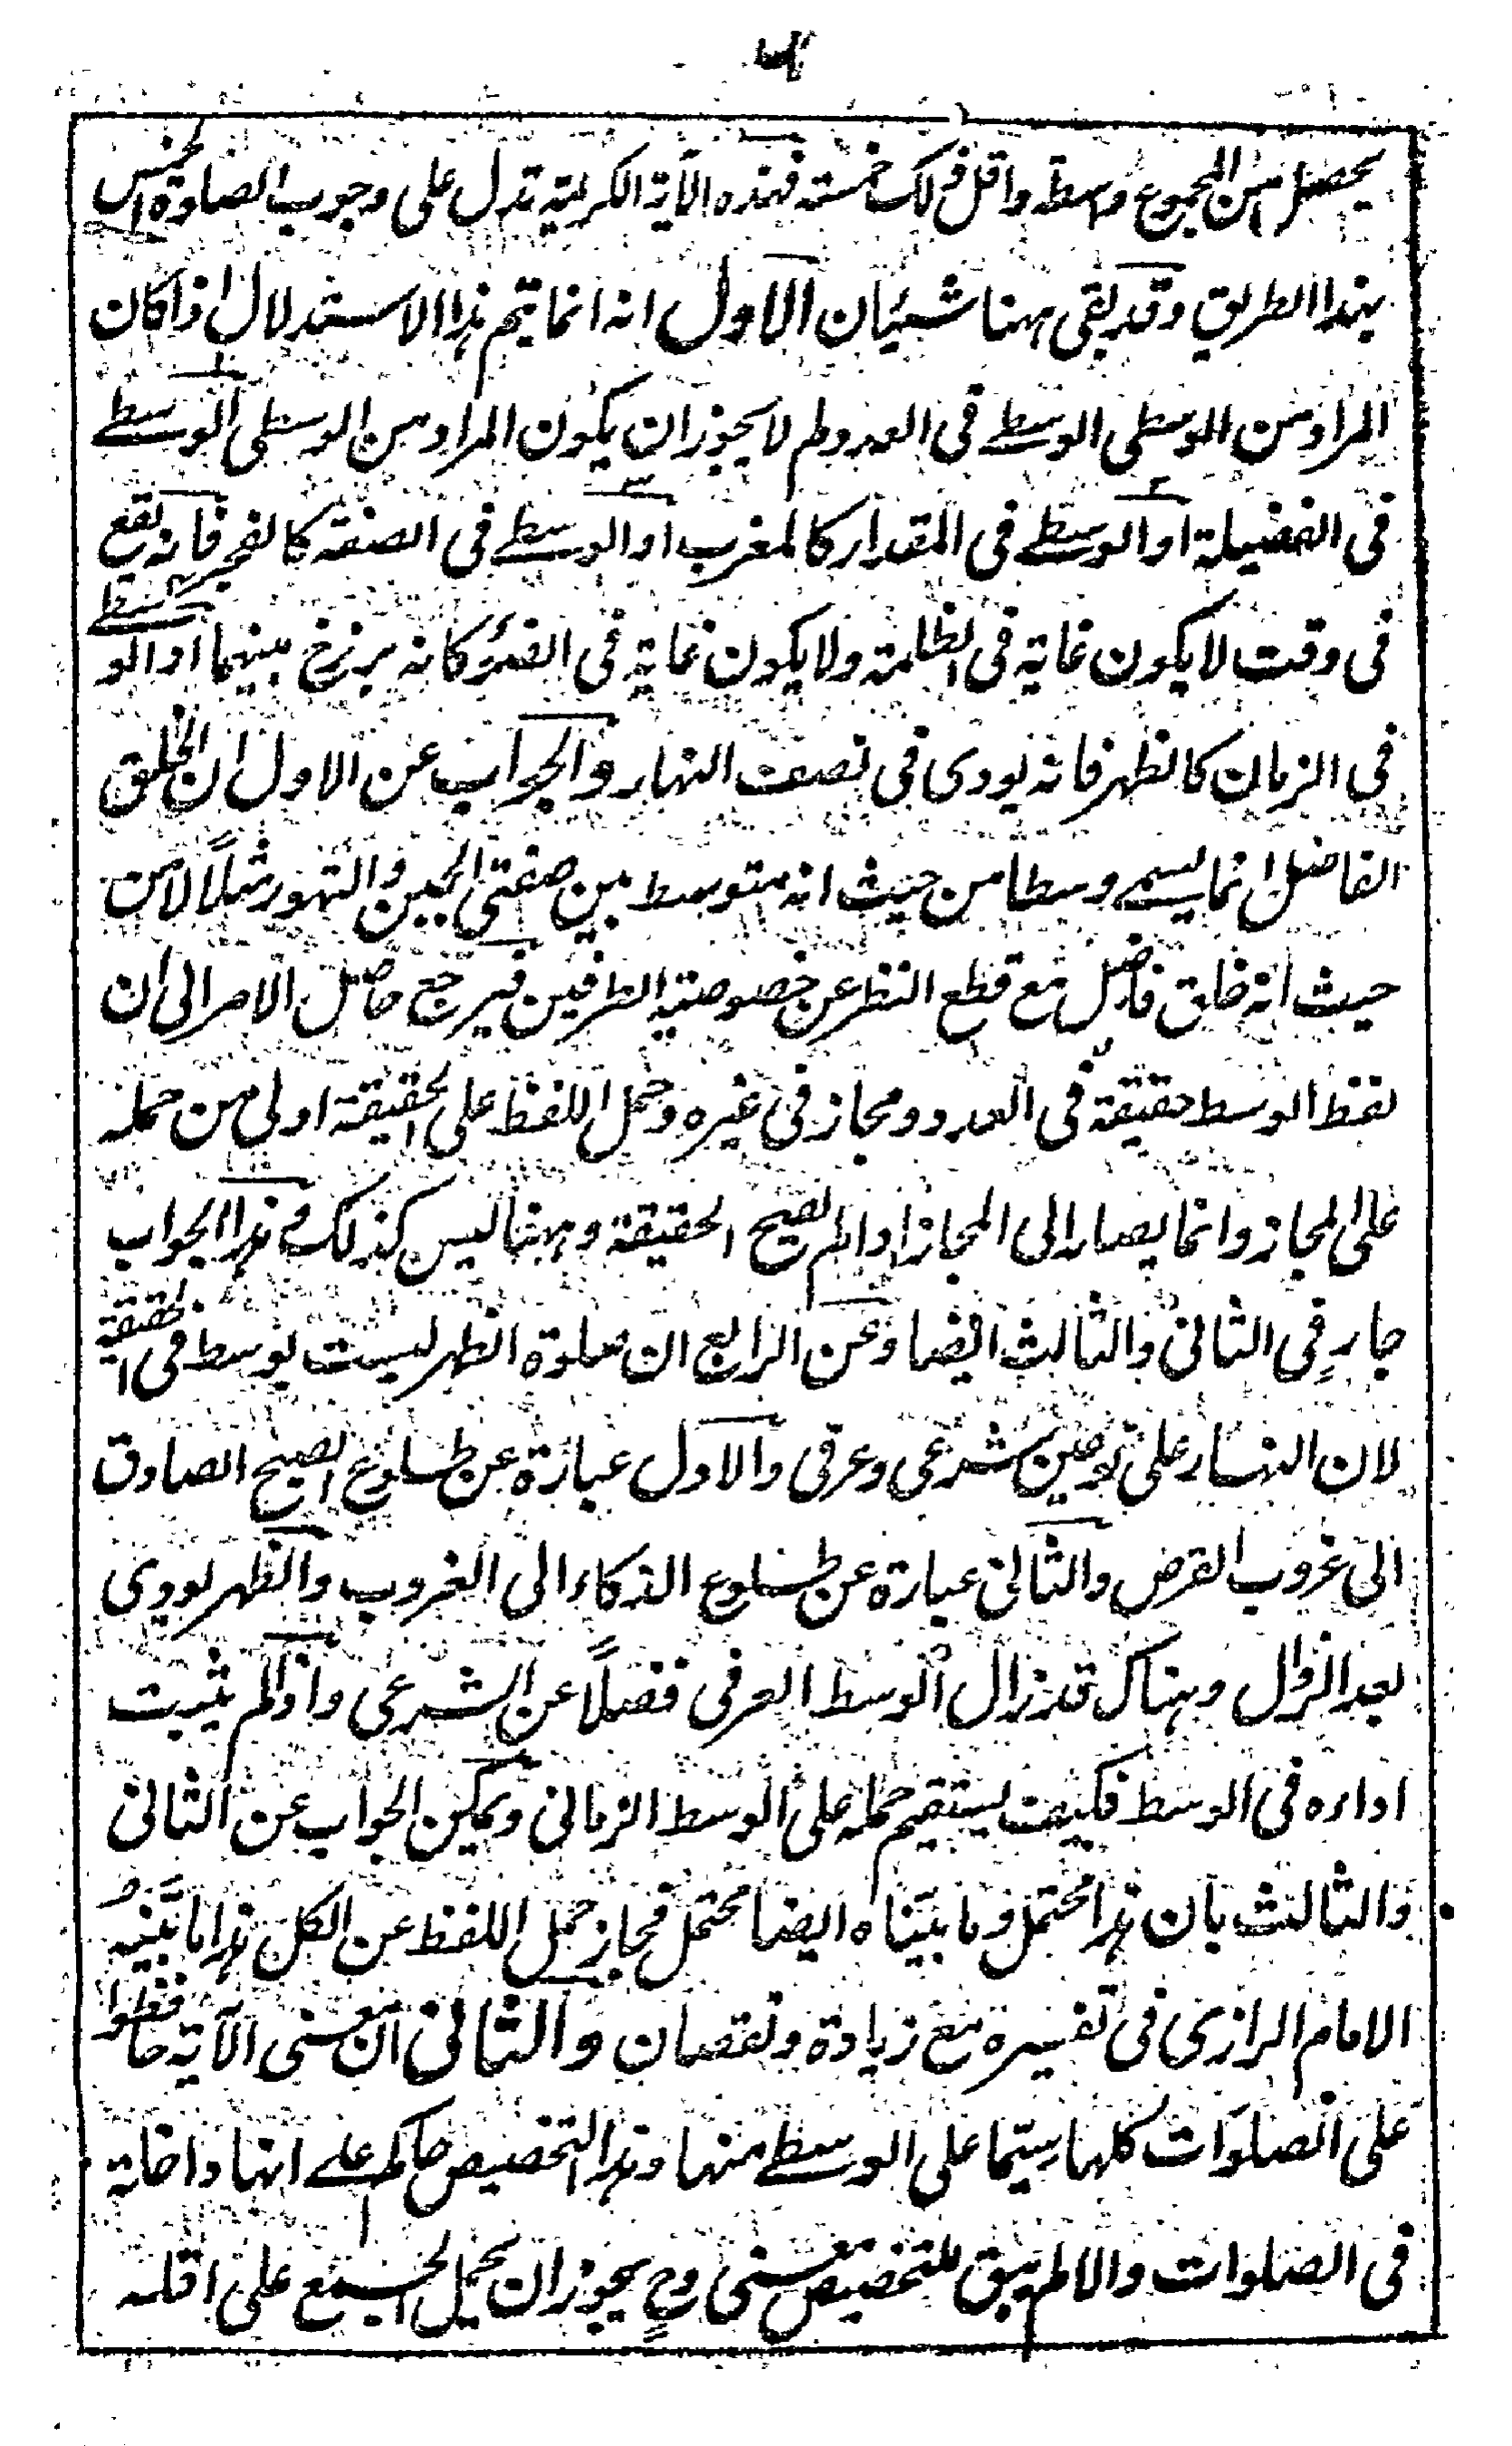 يحصل من المجموع واسطة واقل ذلك خمسة فهذه الآية الكريمة تدل على وجوب الصلوة الخمس
بهذا الطريق وقد بقى ههنا شيئان الاول انه انما يتم هذا الاستدلال اذا كان
المراد من الوسطى الوسطے فى العدد ولم لا يجوز ان يكون المراد من الوسطى الوسطے
فى الفضيلة او الوسطے فى المقدار كالمغرب او الوسطے فى الصفة كالفجر فانه تقع
فى وقت لا يكون غاية فى الظلمة ولا يكون غاية فى الضوء كانه برزخ بينهما او الوسطے
فى الزمان كالظهر فانه يودى فى نصف النهار والجواب عن الاول ان الخلق
الفاضل انما يسمے وسطا من حيث انه متوسط بين صفتى الجبن والتهور مثلاً لا من
حيث انه خلق فاضل مع قطع النظر عن خصوصية الطرفين فيرجع حاصل الامر الى ان
لفظ الوسط حقيقة فى العدد ومجاز فى غيره وحمل اللفظ على الحقيقة اولى من حمله
على المجاز وانما يصار الى المجاز اذا لم تصح الحقيقة وههنا ليس كذلك وهذا الجواب
جارٍ فى الثانى والثالث ايضا وعن الرابع ان صلوة الظهر ليست بوسط فى الحقيقة
لان النهار على نوعين شرعى وعرفى والاول عبارة عن طلوع الصبح الصادق
الى غروب القرص والثانى عبارة عن طلوع الذكاء الى الغروب والظهر يودى
بعد الزوال وهناك قد زال الوسط العرفى فضلاً عن الشرعى واذا لم يثبت
اداءه فى الوسط فكيف يستقيم حمله على الوسط الزمانى ويمكن الجواب عن الثانى
والثالث بان هذا محتمل وما بيّناه ايضا محتمل فجاز حمل اللفظ عن الكل هذا ما بيَّنه
الامام الرازى فى تفسيره مع زيادة ونقصان والثانى ان معنى الآية حافظوا
على الصلوات كلها سيّما على الوسطے منها وهذا التخصيص حاكم علے انها داخلة
فى الصلوات والا لم يبق للتخصيص معنى وح يجوز ان يحمل الجمع على اقله